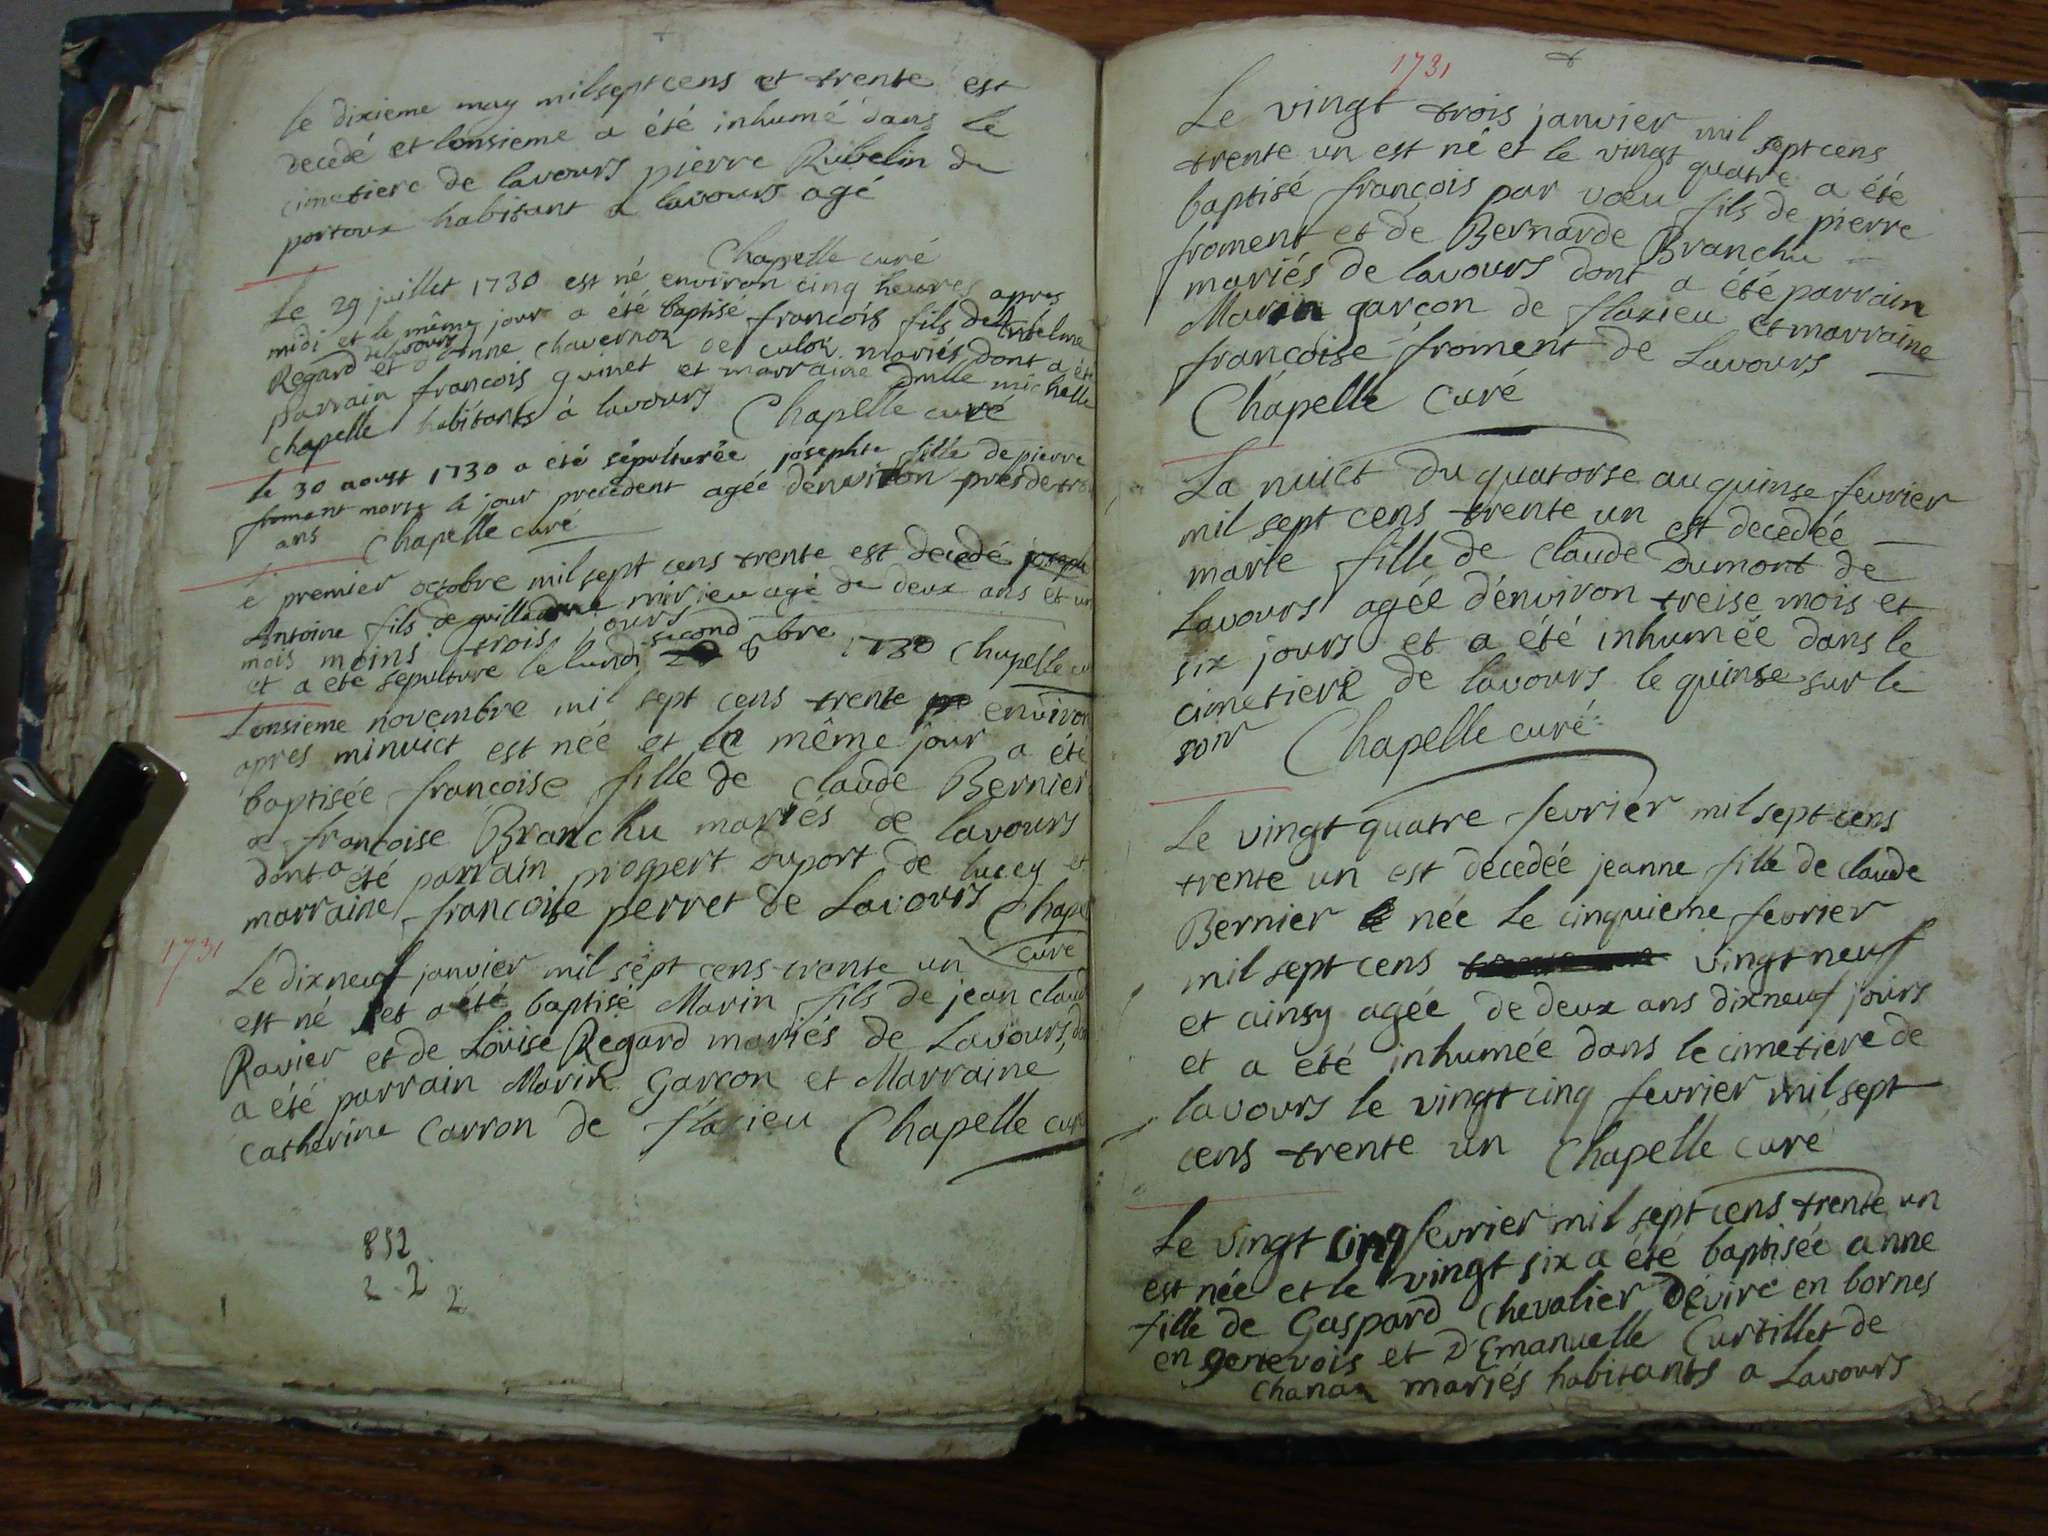 le dixieme may mil sept cens et trente est
decedé et lonsieme a été inhumé dans le
cimetiere de lavours pierre Rubelin de
portoux habitant a lavours agé
Chapelle curé
Le 29 juillet 1730 est né environ cinq heures apres
midi et le même jour a été baptisé francois fils de Antelme
Regard de lavours et danne Chavernon de culoz mariés dont a été
parrain francois guinet et marraine Dmlle michelle
chapelle habitants à lavours Chapelle curé
le 30 aoust 1730 a été sépulturée josephte fille de pierre
froment morte le jour precedent agée dénviron pres de trois
ans Chapelle curé
e premier octobre mil sept cens trente est decedé
Antoine fils de guillaume mirieu agé de deux ans et un
mois moins trois jours
et a été sepulturé le lundi second 8bre 1730 Chapelle cu
Lonsieme novembre mil sept cens trente environ
apres minuict est née et le même jour a été
baptisée francoise fille de claude Bernier
& francoise Branchu mariés de lavours
dont a été parrain prospert Duport de lucey et
marraine francoise perret de Lavours Chapel
curé
1731
Le dix neuf janvier mil sept cens trente un
est né et a été baptisé Marin fils de jean claud
Ravier et de Loüise Regard mariés de Lavours, do
a été parrain Marin Garcon et Marraine
Catherine Carron de flaxieu Chapelle curé
852
2-2
2
1731
Le vingt trois janvier mil sept cens
trente un est né et le vingt quatre a été
baptisé françois par voeu fils de pierre
froment et de Bernarde Branchu
mariés de lavours dont a été parrain
Marin garçon de flaxieu et marraine
françoise froment de Lavours
Chapelle Curé
La nuict du quatorse au quinse fevrier
mil sept cens trente un est decedée
marie fille de Claude Dumont de
Lavours agée d'énviron treise mois et
six jours et a été inhumée dans le
cimetiere de lavours le quinse sur le
soir Chapelle curé
Le vingt quatre fevrier mil sept cens
trente un est decedée jeanne fille de claude
Bernier née le cinquieme fevrier
mil sept cens vingt neuf
et ainsy agée de deux ans dix neuf jours
et a été inhumée dans le cimetiere de
lavours le vingt cinq fevrier mil sept
cens trente un Chapelle curé
Le vingt cinq fevrier mil sept cens trente un
est née et le vingt six a été baptisée anne
fille de Gaspard Chevalier Dévire en bornes
en genevois et D'Emanuelle Curtillet de
Chanaz mariés habitants a Lavours